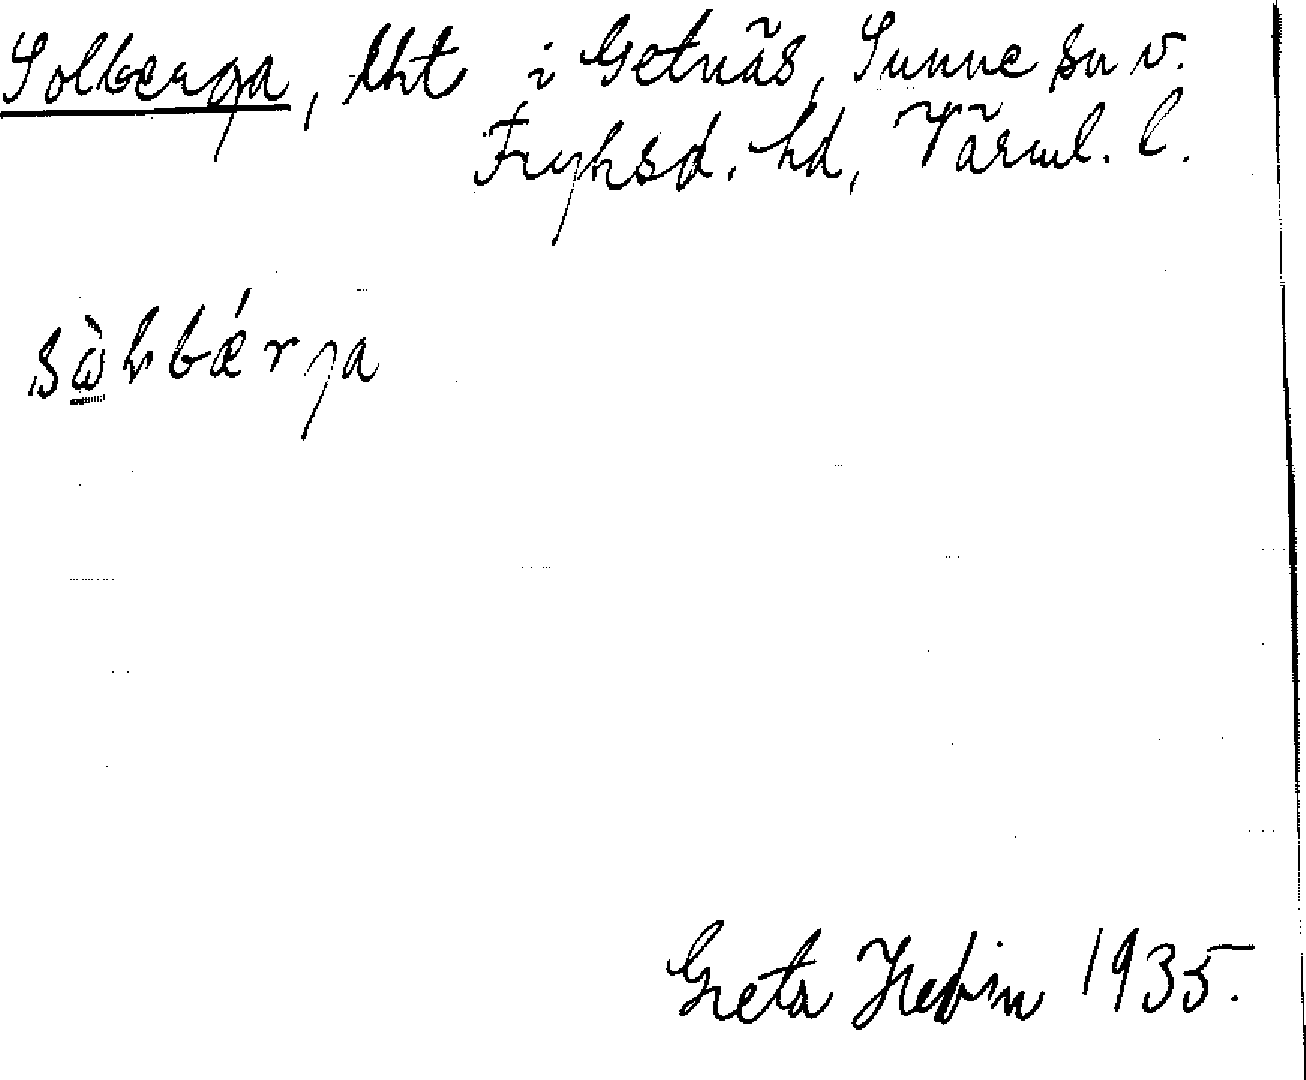 Solberga, lht i Getnäs, Sunne sn v.
Fryksd. hd, Värml. l.
Greta Hedin 1935.